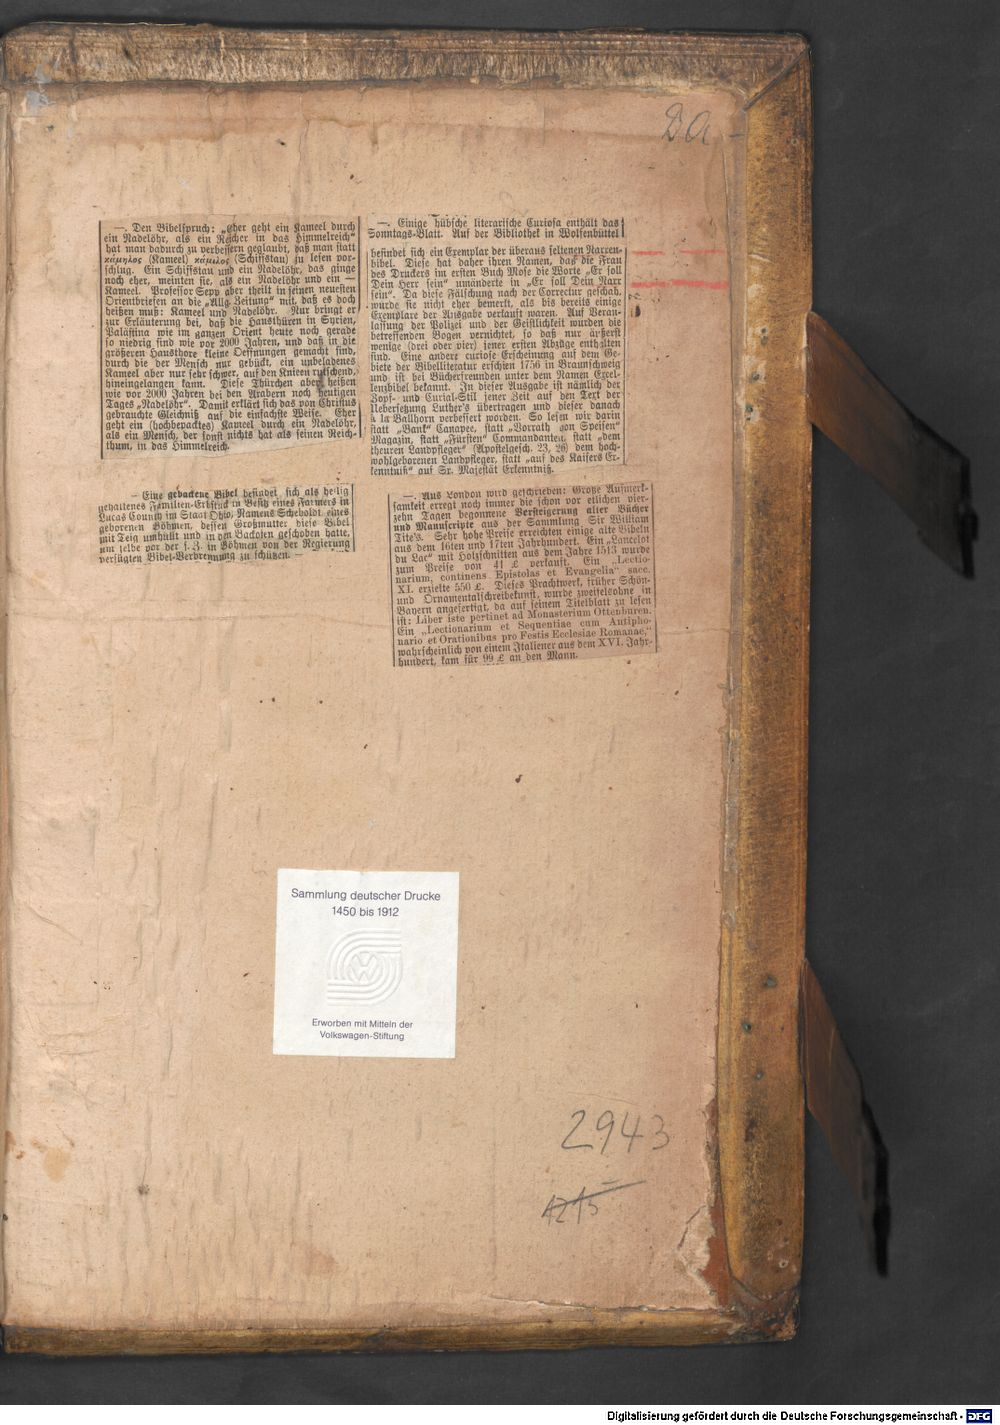 D A —
—. Den Bibelspruch: „Eher geht ein Kameel durch
ein Nadelöhr, als ein Reicher in das Himmelreich“
hat man dadurch zu verbessern geglaubt, daß man statt
κάμηλος (Kameel) κάμιλος (Schiffstau) zu lesen vor-
schlug. Ein Schiffstau und ein Nadelöhr, das ginge
noch eher, meinten sie, als ein Nadelöhr und ein —
Kameel. Professor Sepp aber theilt in seinen neuesten
Orientbriefen an die „Allg. Zeitung“ mit, daß es doch
heißen muß: Kameel und Nadelöhr. Nur bringt er
zur Erläuterung bei, daß die Hausthüren in Syrien,
Palästina wie im ganzen Orient heute noch gerade
so niedrig sind wie vor 2000 Jahren, und daß in die
größeren Hausthore kleine Oeffnungen gemacht sind,
durch die der Mensch nur gebückt, ein unbeladenes
Kameel aber nur sehr schwer, auf den Knieen rutschend,
hineingelangen kann. Diese Thürchen aber heißen
wie vor 2000 Jahren bei den Arabern noch heutigen
Tages „Nadelöhr“. Damit erklärt sich das von Christus
gebrauchte Gleichniß auf die einfachste Weise. Eher
geht ein (hochbepacktes) Kameel durch ein Nadelöhr,
als ein Mensch, der sonst nichts hat als seinen Reich-
thum, in das Himmelreich.
— Eine gebackene Bibel befindet sich als heilig
gehaltenes Familien-Erbstück im Besitz eines Farmers in
Lucas County im Staat Ohio, Namens Scheboldt, eines
geborenen Böhmen, dessen Großmutter diese Bibel
mit Teig umhüllt und in den Backofen geschoben hatte,
um selbe vor der s. Z. in Böhmen von der Regierung
verfügten Bibel-Verbrennung zu schützen. —
—. Einige hübsche literarische Curiosa enthält das
Sonntags-Blatt. Auf der Bibliothek in Wolfenbüttel
befindet sich ein Exemplar der überaus seltenen Narren-
bibel. Diese hat daher ihren Namen, daß die Frau
des Druckers im ersten Buch Mose die Worte „Er soll
Dein Herr sein“ umänderte in „Er soll Dein Narr
sein“. Da diese Fälschung nach der Correctur geschah,
wurde sie nicht eher bemerkt, als bis bereits einige
Exemplare der Ausgabe verkauft waren. Auf Veran-
lassung der Polizei und der Geistlichkeit wurden die
betreffenden Bogen vernichtet, so daß nur äußerst
wenige (drei oder vier) jener ersten Abzüge enthalten
sind. Eine andere curiose Erscheinung auf dem Ge-
biete der Bibelliteratur erschien 1756 in Braunschweig
und ist bei Bücherfreunden unter dem Namen Excel-
lenzbibel bekannt. In dieser Ausgabe ist nämlich der
Zopf- und Curial-Stil jener Zeit auf den Text der
Uebersetzung Luther's übertragen und dieser danach
à la Ballhorn verbessert worden. So lesen wir darin
statt „Bank“ Canapee, statt „Vorrath von Speisen“
Magazin, statt „Fürsten“ Commandanten, statt „dem
theuren Landpfleger“ (Apostelgesch. 23, 26) dem hoch-
wohlgeborenen Landpfleger, statt „auf des Kaisers Er-
kenntniß“ auf Sr. Majestät Erkenntniß.
—. Aus London wird geschrieben: Große Aufmerk-
samkeit erregt noch immer die schon vor etlichen vier-
zehn Tagen begonnene Versteigerung alter Bücher
und Manuscripte aus der Sammlung Sir William
Tite's. Sehr hohe Preise erreichten einige alte Bibeln
aus dem 16ten und 17ten Jahrhundert. Ein „Lancelot
du Lac“ mit Holzschnitten aus dem Jahre 1513 wurde
zum Preise von 41 £ verkauft. Ein „Lectio-
narium, continens Epistolas et Evangelia“ saec.
XI. erzielte 550 £. Dieses Prachtwerk, früher Schön-
und Ornamentalschreibekunst, wurde zweifelsohne in
Bayern angefertigt, da auf seinem Titelblatt zu lesen
ist: Liber iste pertinet ad Monasterium Ottenburen.
Ein „Lectionarium et Sequentiae cum Antipho-
nario et Orationibus pro Festis Ecclesiae Romanae,“
wahrscheinlich von einem Italiener aus dem XVI. Jahr-
hundert, kam für 99 £ an den Mann.
Sammlung deutscher Drucke
1450 bis 1912
VW
Erworben mit Mitteln der
Volkswagen-Stiftung
2943
Digitalisierung gefördert durch die Deutsche Forschungsgemeinschaft - DFG